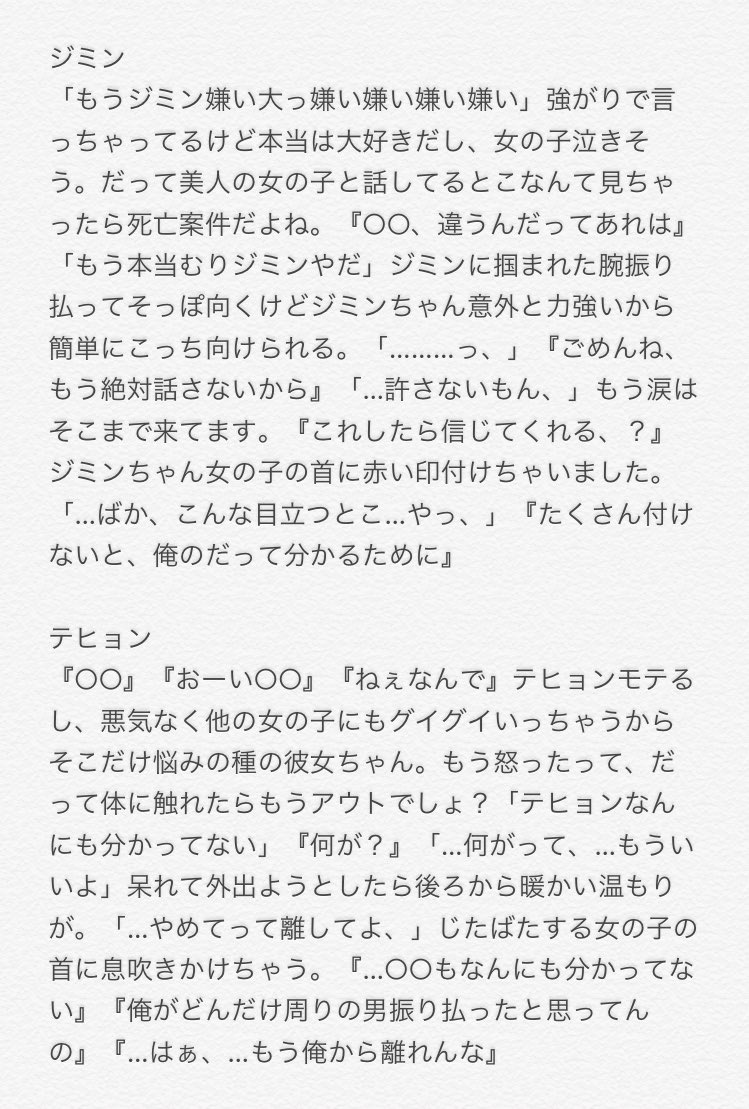 ジミン
「もうジミン嫌い大っ嫌い嫌い嫌い嫌い」強がりで言
っちゃってるけど本当は大好きだし、女の子泣きそ
う。だって美人の女の子と話してるとこなんて見ちゃ
ったら死亡案件だよね。『〇〇、違うんだってあれは』
「もう本当むりジミンやだ」ジミンに掴まれた腕振り
払ってそっぽ向くけどジミンちゃん意外と力強いから
簡単にこっち向けられる。「………っ、」『ごめんね、
もう絶対話さないから』「…許さないもん、」もう涙は
そこまで来てます。『これしたら信じてくれる、？』
ジミンちゃん女の子の首に赤い印付けちゃいました。
「…ばか、こんな目立つとこ…やっ、」『たくさん付け
ないと、俺のだって分かるために』
テヒョン
『〇〇』『おーい〇〇』『ねぇなんで』テヒョンモテる
し、悪気なく他の女の子にもグイグイいっちゃうから
そこだけ悩みの種の彼女ちゃん。もう怒ったって、だ
って体に触れたらもうアウトでしょ？「テヒョンなん
にも分かってない」『何が？』「…何がって、…もうい
いよ」呆れて外出ようとしたら後ろから暖かい温もり
が。「…やめてって離してよ、」じたばたする女の子の
首に息吹きかけちゃう。『…〇〇もなんにも分かってな
い』『俺がどんだけ周りの男振り払ったと思ってん
の』『…はぁ、…もう俺から離れんな』